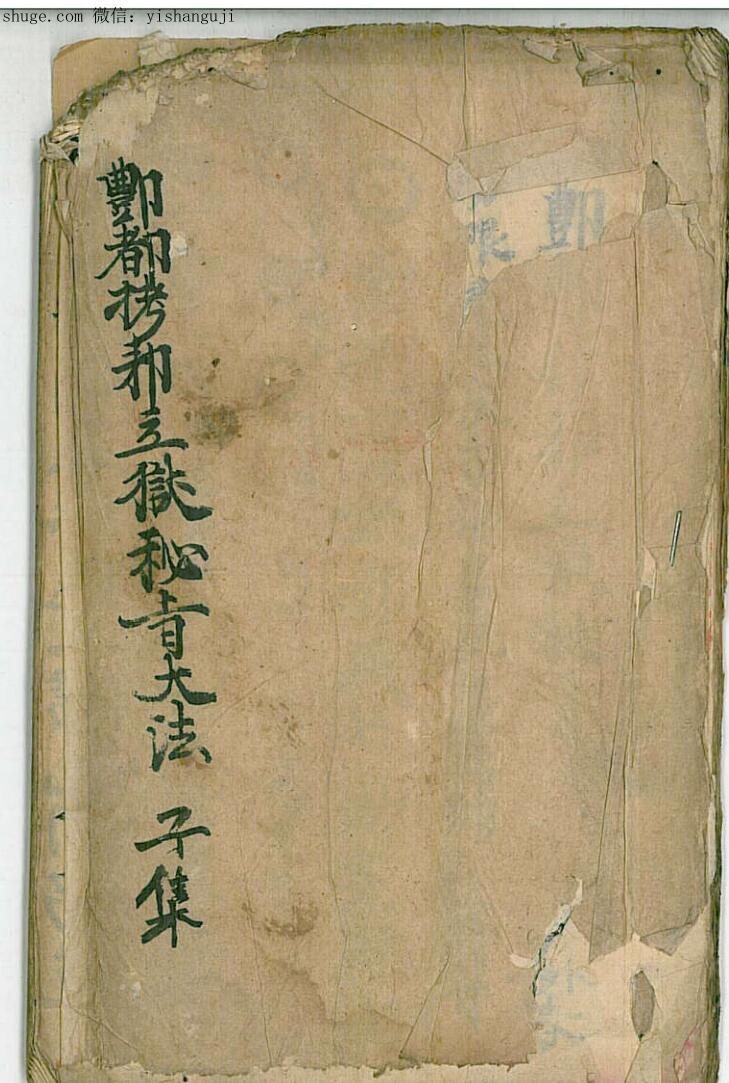 shuge.com 微信：yishanguji
酆都拷邪立獄秘旨大法 子集
酆